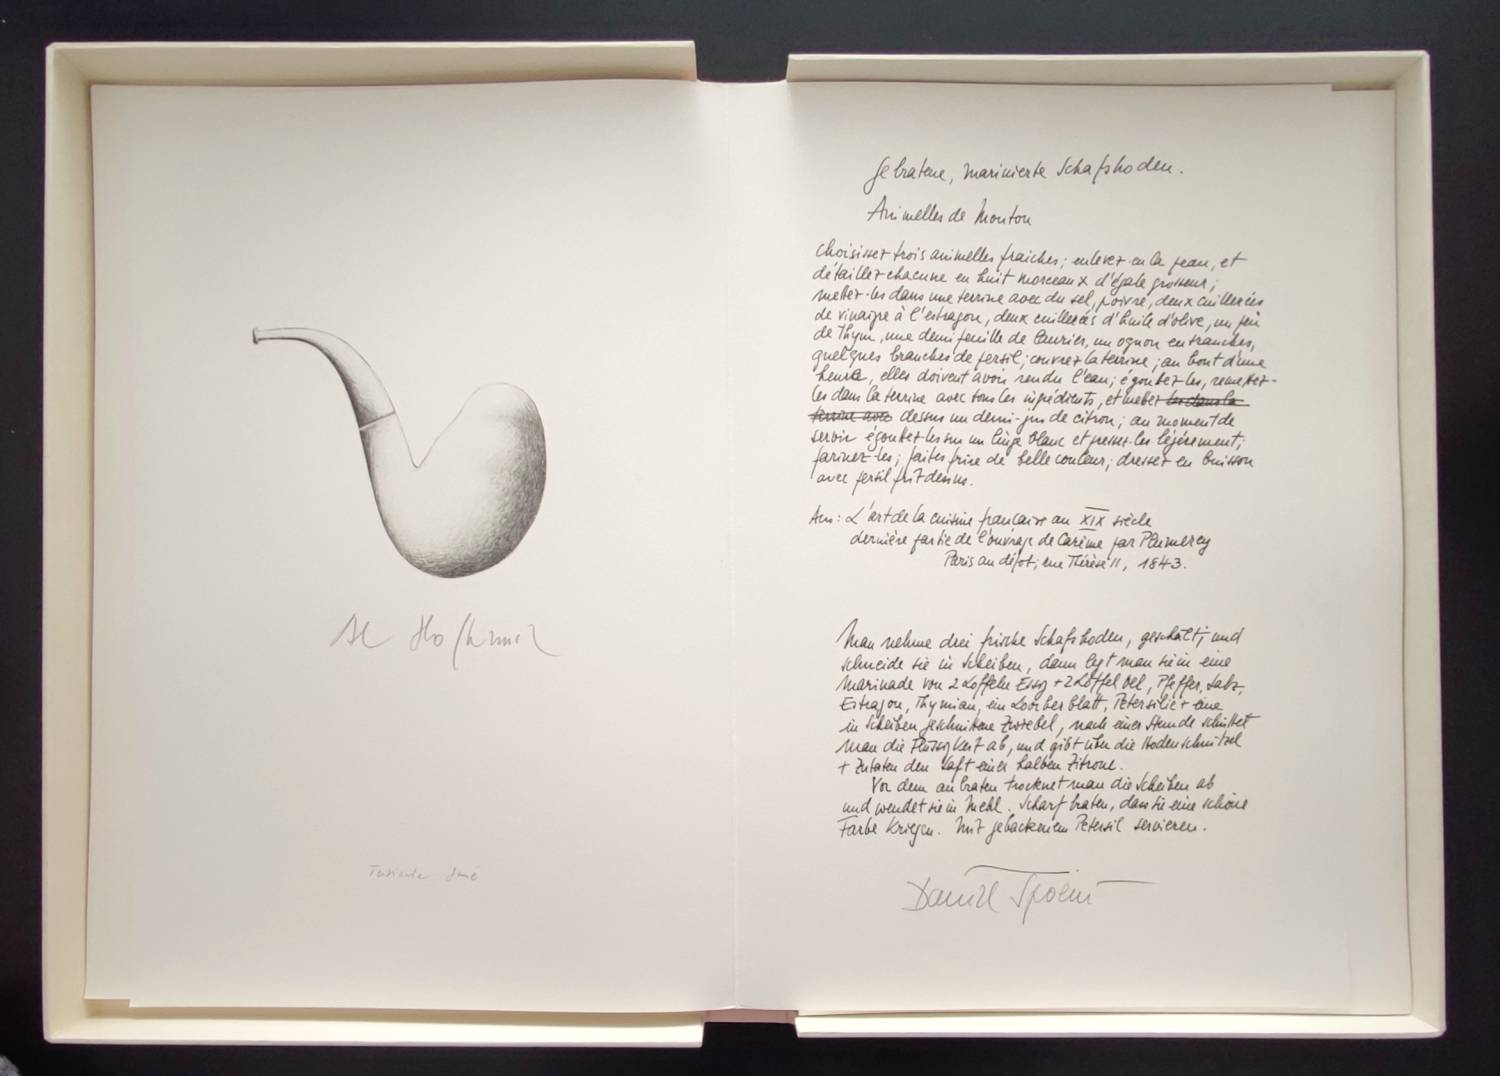 Gebratene, marinierte Schafshoden.
Animelles de Mouton
choisissez trois animelles fraiches; enlevez-en la peau, et
détaillez chacune en huit morceaux d'égale grosseur;
mettez-les dans une terrine avec du sel, poivre, deux cuillerées
de vinaigre à l'estragon, deux cuillerées d'huile d'olive, un peu
de Thym, une demi feuille de laurier, un ognon en tranches,
quelques branches de persil; couvrez la terrine; au bout d'une
heure, elles doivent avoir rendu l'eau; égoutez-les, remettez-
les dans la terrine avec tous les ingrédients, et mettez les dans la
terrine avec dessus un demi-jus de citron; au moment de
servir égoutez-les sur un linge blanc et pressez-les légèrement;
farinez-les; faites frire de belle couleur; dressez en buisson
avec persil frit dessus.
Aus: L'art de la cuisine française au XIX siècle
dernière partie de l'ouvrage de Carème par Plumerey
Paris au dépot; rue Thérèse 11, 1843.
Man nehme drei frische Schafshoden, geschält, und
schneide sie in Scheiben, dann legt man sie in eine
Marinade von 2 Löffeln Essig + 2 Löffel Oel, Pfeffer, Salz,
Estragon, Thymian, ein Loorberblatt, Petersilie + eine
in Scheiben geschnittene Zwiebel, nach einer Stunde schüttet
man die Flüssigkeit ab, und gibt über die Hodenschnitzel
+ Zutaten den Saft einer halben Zitrone.
Vor dem anbraten trocknet man die Scheiben ab
und wendet sie in Mehl. Scharf braten, dass sie eine schöne
Farbe kriegen. Mit gebackenem Petersil servieren.
Daniel Spoerri